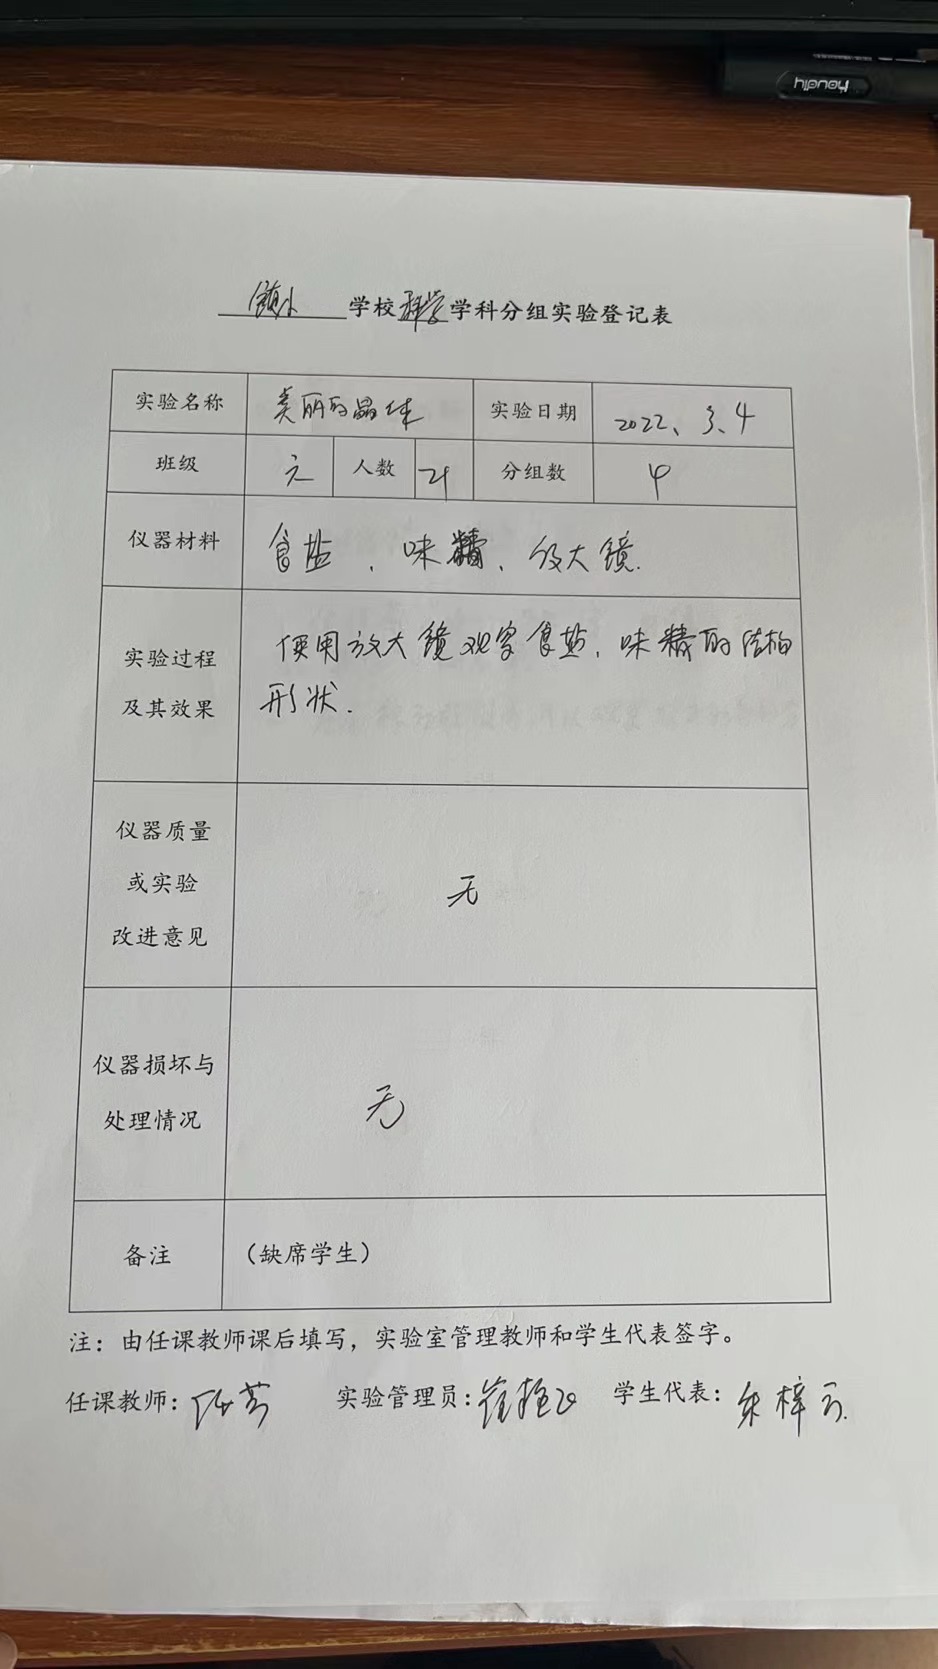 houdiy
学校科学学科分组实验登记表
实验名称 美丽的晶体 实验日期 2022、3、4
班级 人数 21 分组数 4
仪器材料 食盐、味精、放大镜.
实验过程
及其效果
使用放大镜观察食盐、味精的结构
形状.
仪器质量
或实验
改进意见
无
仪器损坏与
处理情况
无
备注 (缺席学生)
注：由任课教师课后填写，实验室管理教师和学生代表签字。
任课教师： 实验管理员： 学生代表：朱梓